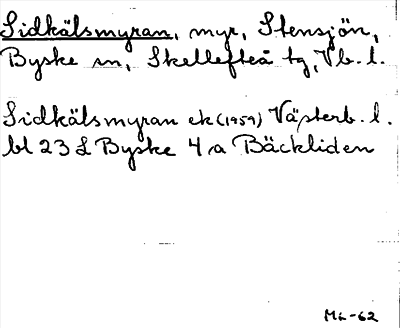 Sidkälsmyran, myr, Stensjön,
Byske sn, Skellefteå tg, Vb. l.
Sidkälsmyran ek (1959) Västerb. l.
bl 23 L Byske 4 a Bäckliden
ML-62